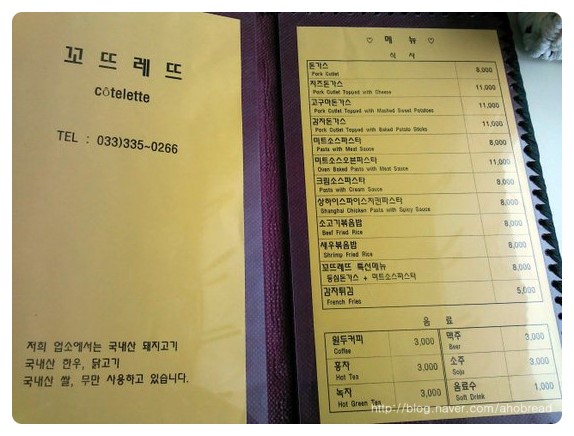 꼬 뜨 레 뜨
côtelette
TEL : 033)335~0266
저희 업소에서는 국내산 돼지고기
국내산 한우, 닭고기
국내산 쌀, 무만 사용하고 있습니다.
♡ 메 뉴 ♡
식 사
돈가스 8,000
Pork Cutlet
치즈돈가스 11,000
Pork Cutlet Topped with Cheese
고구마돈가스 11,000
Pork Cutlet Topped with Mashed Sweet Potatoes
감자돈가스 11,000
Pork Cutlet Topped with Baked Potato Sticks
미트소스파스타 8,000
Pasta with Meat Sauce
미트소스오븐파스타 11,000
Oven Baked Pasta with Meat Sauce
크림소스파스타 8,000
Pasta with Cream Sauce
상하이스파이스치킨파스타 8,000
Shanghai Chicken Pasta with Spicy Sauce
소고기볶음밥 8,000
Beef Fried Rice
새우볶음밥 8,000
Shrimp Fried Rice
꼬뜨레뜨 특선메뉴 8,000
등심돈가스 + 미트소스파스타
감자튀김 5,000
French Fries
음 료
원두커피 3,000 맥주 3,000
Coffee Beer
홍차 3,000 소주 3,000
Hot Tea Soju
녹차 3,000 음료수 1,000
Hot Green Tea Soft Drink
http://blog.naver.com/ahobread